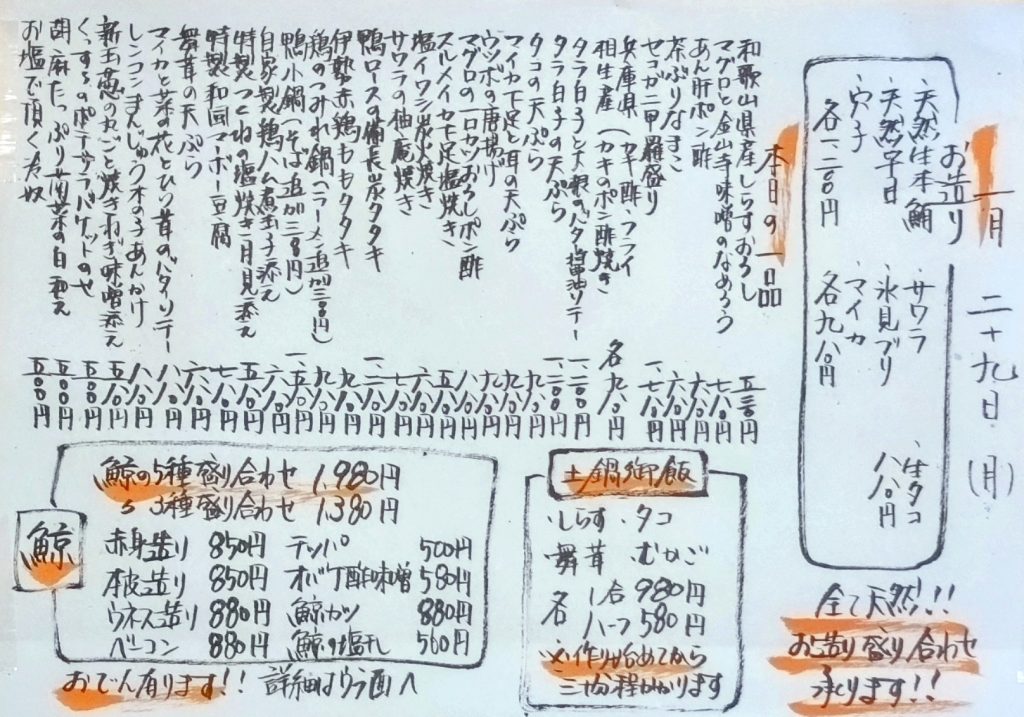 一月二十九日(月)
お造り
・天然生本鮪
・天然平目
・穴子
各一、二〇〇円
・サワラ
・氷見ブリ
・マイカ
各九八〇円
・生タコ
八八〇円
全て天然!!
お造り盛り合わせ
承ります!!
本日の一品
和歌山県産しらすおろし 五三〇円
マグロと金山寺味噌のなめろう 七八〇円
あん肝ポン酢 九八〇円
茶ぶりなまこ 六八〇円
セコガニ甲羅盛り 一、七八〇円
兵庫県(カキ酢・フライ
相生産(カキのポン酢焼き 各九八〇円
タラ白子と大根のバター醤油ソテー 一、二〇〇円
タラ白子の天ぷら 一、二〇〇円
タコの天ぷら 九八〇円
マイカ下足と耳の天ぷら 九八〇円
ウツボの唐揚げ 九八〇円
マグロの一口カツおろしポン酢 八八〇円
スルメイカ下足塩焼き 五八〇円
塩イワシ炭火焼き 六八〇円
サワラの柚庵焼き 七八〇円
鴨ロースの備長炭タタキ 一、二八〇円
伊勢赤鶏ももタタキ 九八〇円
鶏のつみれ鍋(ラーメン追加三〇〇円) 九八〇円
鴨小鍋(そば追加三〇〇円) 一、五八〇円
自家製鶏ハム煮玉子添え 六八〇円
特製つくねの塩焼き月見添え 五八〇円
特製和風マーボ豆腐 六八〇円
舞茸の天ぷら 六八〇円
マイカと菜の花とひら茸のバタソテー 八八〇円
レンコンまんじゅう木の子あんかけ 八八〇円
新玉葱の丸ごと焼きねぎ味噌添え 五八〇円
くっするのポテサラバケットのせ 五〇〇円
胡麻たっぷり菊菜の白和え 五〇〇円
お塩で頂く冷奴 五〇〇円
鯨
鯨の5種盛り合わせ 1,980円
〃 3種盛り合わせ 1,380円
赤身造り 850円 テッパ 500円
本皮造り 850円 オバケ酢味噌 580円
ウネス造り 880円 鯨カツ 880円
ベーコン 880円 鯨の塩タレ 500円
おでん有ります!! 詳細はウラ面へ
土鍋御飯
・しらす ・タコ
・舞茸 ・むかご
各 1合 980円
ハーフ 580円
※作り始めてから
三十分程かかります